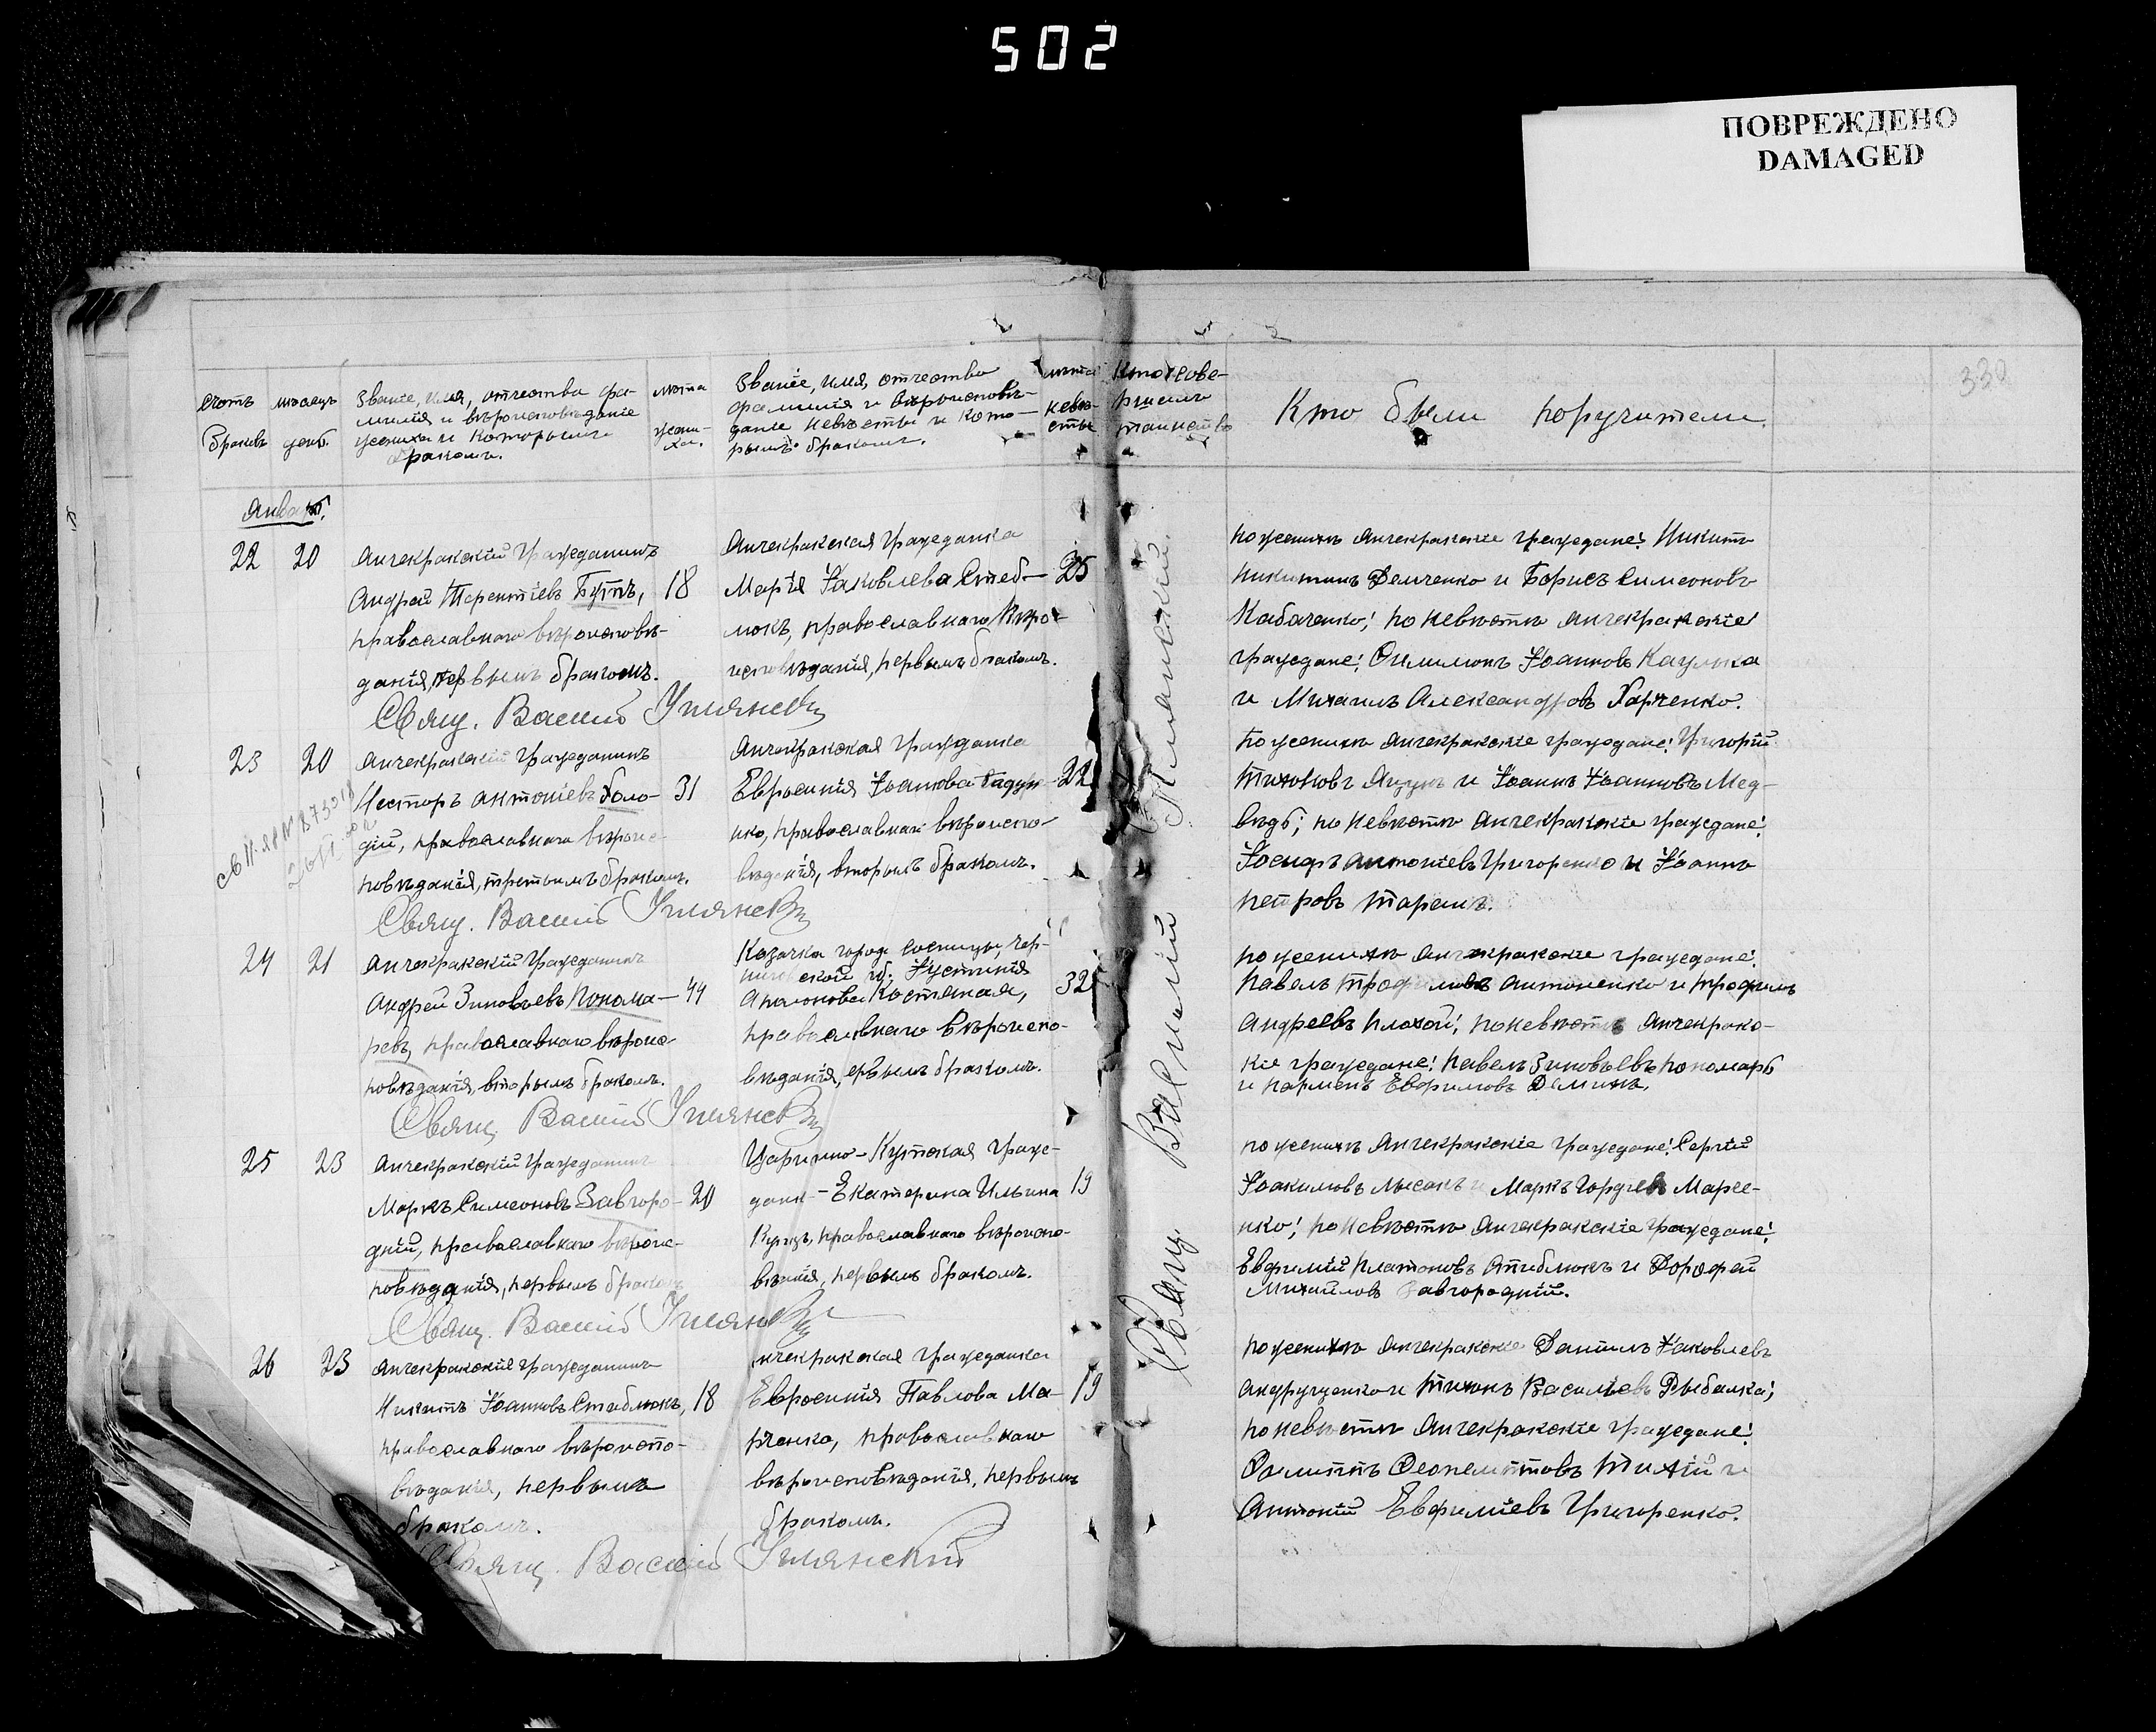 502
ПОВРЕЖДЕНО
DAMAGED
330
счетъ браковъ
мѣсяцъ день
Званіе, имя, отчество фа-
милія и вѣроисповѣданіе
жениха и которымъ
бракомъ.
лѣта жени-
ха.
Званіе, имя, отчество
фамилія и вѣроисповѣ-
даніе невѣсты и кото-
рымъ бракомъ.
лѣта невѣ-
сты
Кто сове-
ршилъ
таинство
Кто были поручители.
Январь.
22 20
Анчекракскій гражданинъ
Андрей Терентіевъ Бутъ,
православнаго вѣроисповѣ-
данія, первымъ бракомъ.
18
Анчекракская гражданка
Марія Іаковлева Стеб-
люкъ, православнаго вѣро-
исповѣданія, первымъ бракомъ.
25
Свящ. Василій Умянскій
по женихѣ Анчекракскіе граждане: Никита
Никитинъ Демченко и Борисъ Симеоновъ
Кабаченко; по невѣстѣ Анчекракскіе
граждане: Филимонъ Іоанновъ
и Михаилъ Александровъ Харченко.
23 20
Анчекракскій гражданинъ
Несторъ Антоніевъ Голо-
дій, православнаго вѣроис-
повѣданія, третьимъ бракомъ.
31
Анчекракская гражданка
Евросинія Іоаннова
нко, православнаго вѣроиспо-
вѣданія, вторымъ бракомъ.
22
Свящ. Василій Умянскій
По женихѣ Анчекракскіе граждане: Григорій
Тихоновъ Яцунъ и Іоаннъ Іоанновъ Мед-
вѣдь; по невѣстѣ Анчекракскіе граждане:
Іосифъ Антоніевъ Григоренко и Іоаннъ
Петровъ Таранъ.
24 21
Анчекракскій гражданинъ
Андрей Зиновьевъ Понома-
ревъ, православнаго вѣроис-
повѣданія, вторымъ бракомъ.
44
Козачка города Сосницы, Чер-
ниговской губ. Іустинія
Костяная,
православнаго вѣроиспо-
вѣданія, первымъ бракомъ.
32
Свящ. Василій Умянскій
по женихѣ Анчекракскіе граждане:
Павелъ Трофимовъ Антоненко и Трофимъ
Андреевъ Плохой; по невѣстѣ Анчекракс-
кіе граждане: Павелъ Зиновьевъ Пономарь
и Парменъ Евфимовъ Деминъ.
25 23
Анчекракскій гражданинъ
Маркъ Симеоновъ Завгоро-
дній, православнаго вѣроис-
повѣданія, первымъ бракомъ
20
Царично-Кутская граж-
данк- Екатерина Ильина
Куцъ, православнаго вѣроиспо-
вѣданія, первымъ бракомъ.
19
Свящ. Василій Умянскій
по женихѣ Анчекракскіе граждане: Сергій
Іоакимовъ Лысакъ и Маркъ Гордѣевъ Марче-
нко; по невѣстѣ Анчекракскіе граждане:
Евфимій Платоновъ Стиблюкъ и Дорофей
Михайловъ Завгородній.
26 23
Анчекракскій гражданинъ
Никита Іоанновъ Стиблюкъ,
православнаго вѣроиспо-
вѣданія, первымъ
бракомъ.
18
Анчекракская гражданка
Евросинія Павлова Ма-
рченко, православнаго
вѣроисповѣданія, первымъ
бракомъ.
19
Свящ. Василій Умянскій
по женихѣ Анчекракскіе Даніилъ Іаковлевъ
Андрущенко и Тихонъ Васильевъ Рыбалка;
по невѣстѣ Анчекракскіе граждане:
Тихій и
Антоній Евфиміевъ Григоренко.
Свящ. Василій Умянскій.